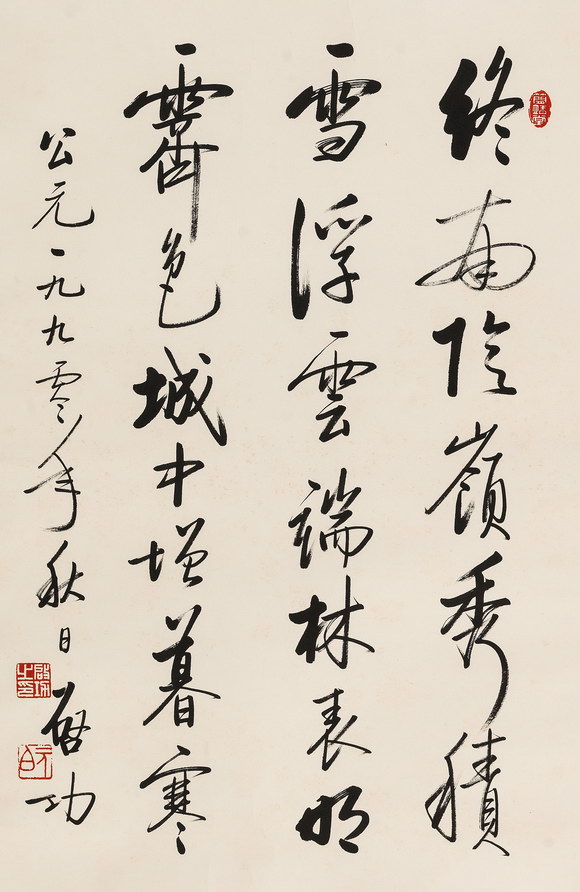 終南陰嶺秀積
雪浮雲端林表明
霽色城中增暮寒
公元一九九零年秋日
啓功
啓功之印
元白